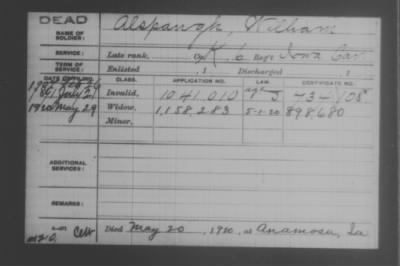 DEAD
NAME OF SOLDIER: Alspaugh, William
SERVICE: Late rank, Co K, 6 Reg't Iowa Cav.
TERM OF SERVICE: Enlisted , 1 Discharged , 1
DATE OF FILING. CLASS. APPLICATION NO. LAW. CERTIFICATE NO.
Invalid, 1041,010 age
1920 May 29 Widow, 1,158,283 5-1-20 898,680
Minor,
ADDITIONAL SERVICES:
REMARKS:
Died May 20, 1920, at Anamosa, Ia